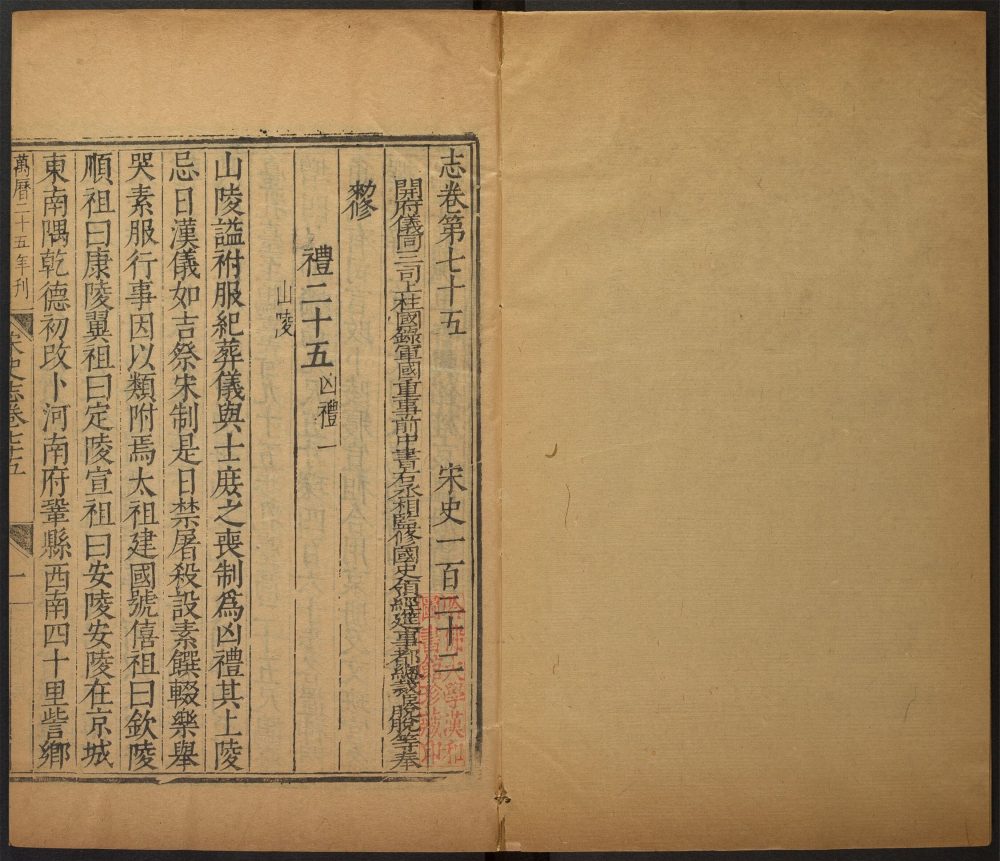 志卷第七十五　宋史一百二十二
開府儀同三司上柱國錄軍國重事前中書右丞相監修國史領經筵事都總裁臣脫脫等奉
勑修
禮二十五 凶禮一
山陵
山陵謚祔服紀葬儀與士庶之喪制爲凶禮其上陵
忌日漢儀如吉祭宋制是日禁屠殺設素饌輟樂舉
哭素服行事因以類附焉太祖建國號僖祖曰欽陵
順祖曰康陵翼祖曰定陵宣祖曰安陵安陵在京城
東南隅乾德初改卜河南府鞏縣西南四十里訾鄉
萬曆二十五年刊
宋史志卷七十五
一
哈佛大學漢和
圖書館珍藏印